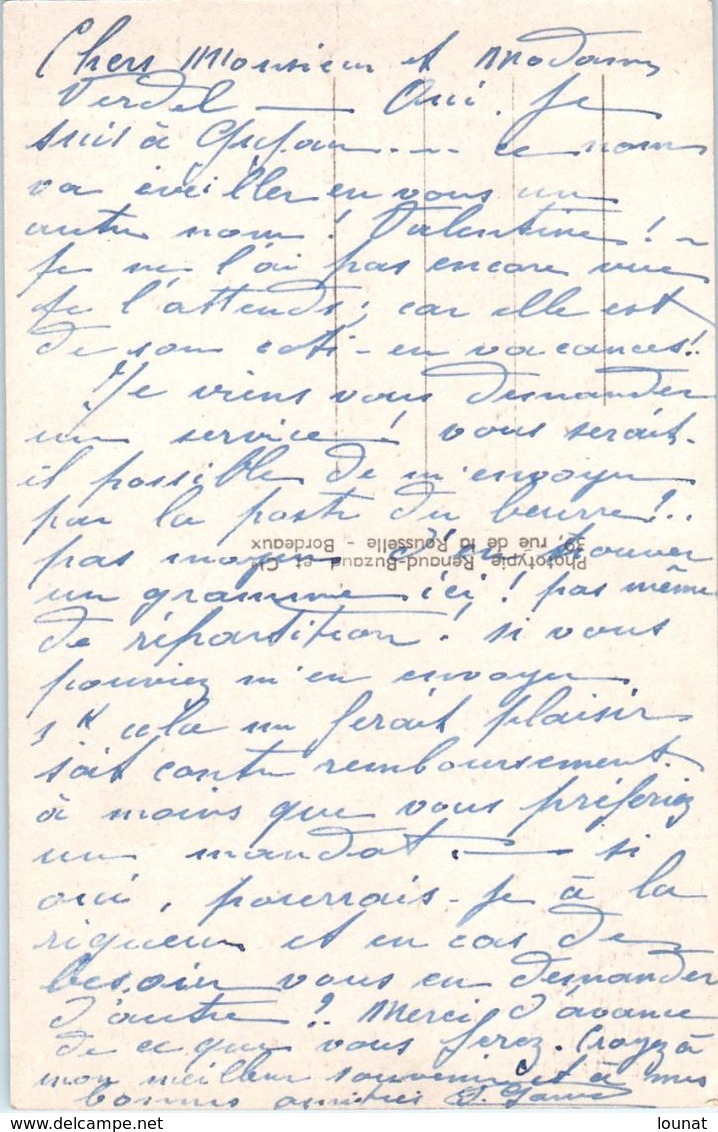 Chers Monsieur et Madame
Verdel — Oui. Je
suis à Gujan.... ce nom
va éveiller en vous un
autre nom! Valentine! ~
Je ne l'ai pas encore vue
Je l'attends; car elle est
de son coté - en vacances!.
Je viens vous demander
un service! vous serait-
il possible de m'envoyer
par la poste du beurre!..
pas moyen d'en trouver
un gramme ici! pas même
de répartition! si vous
pouviez m'en envoyer
1 K cela me ferait plaisir
soit contre remboursement
à moins que vous préfériez
un mandat. — si
oui, pourrais-je à la
rigueur et en cas de
besoin vous en demander
d'autre?. Merci d'avance
de ce que vous ferez. Croyez à
mon meilleur souvenir et à mes
bonnes amitiés
Phototypie Renaud-Buzaud et Cie
39, rue de la Rousselle - Bordeaux
lounat